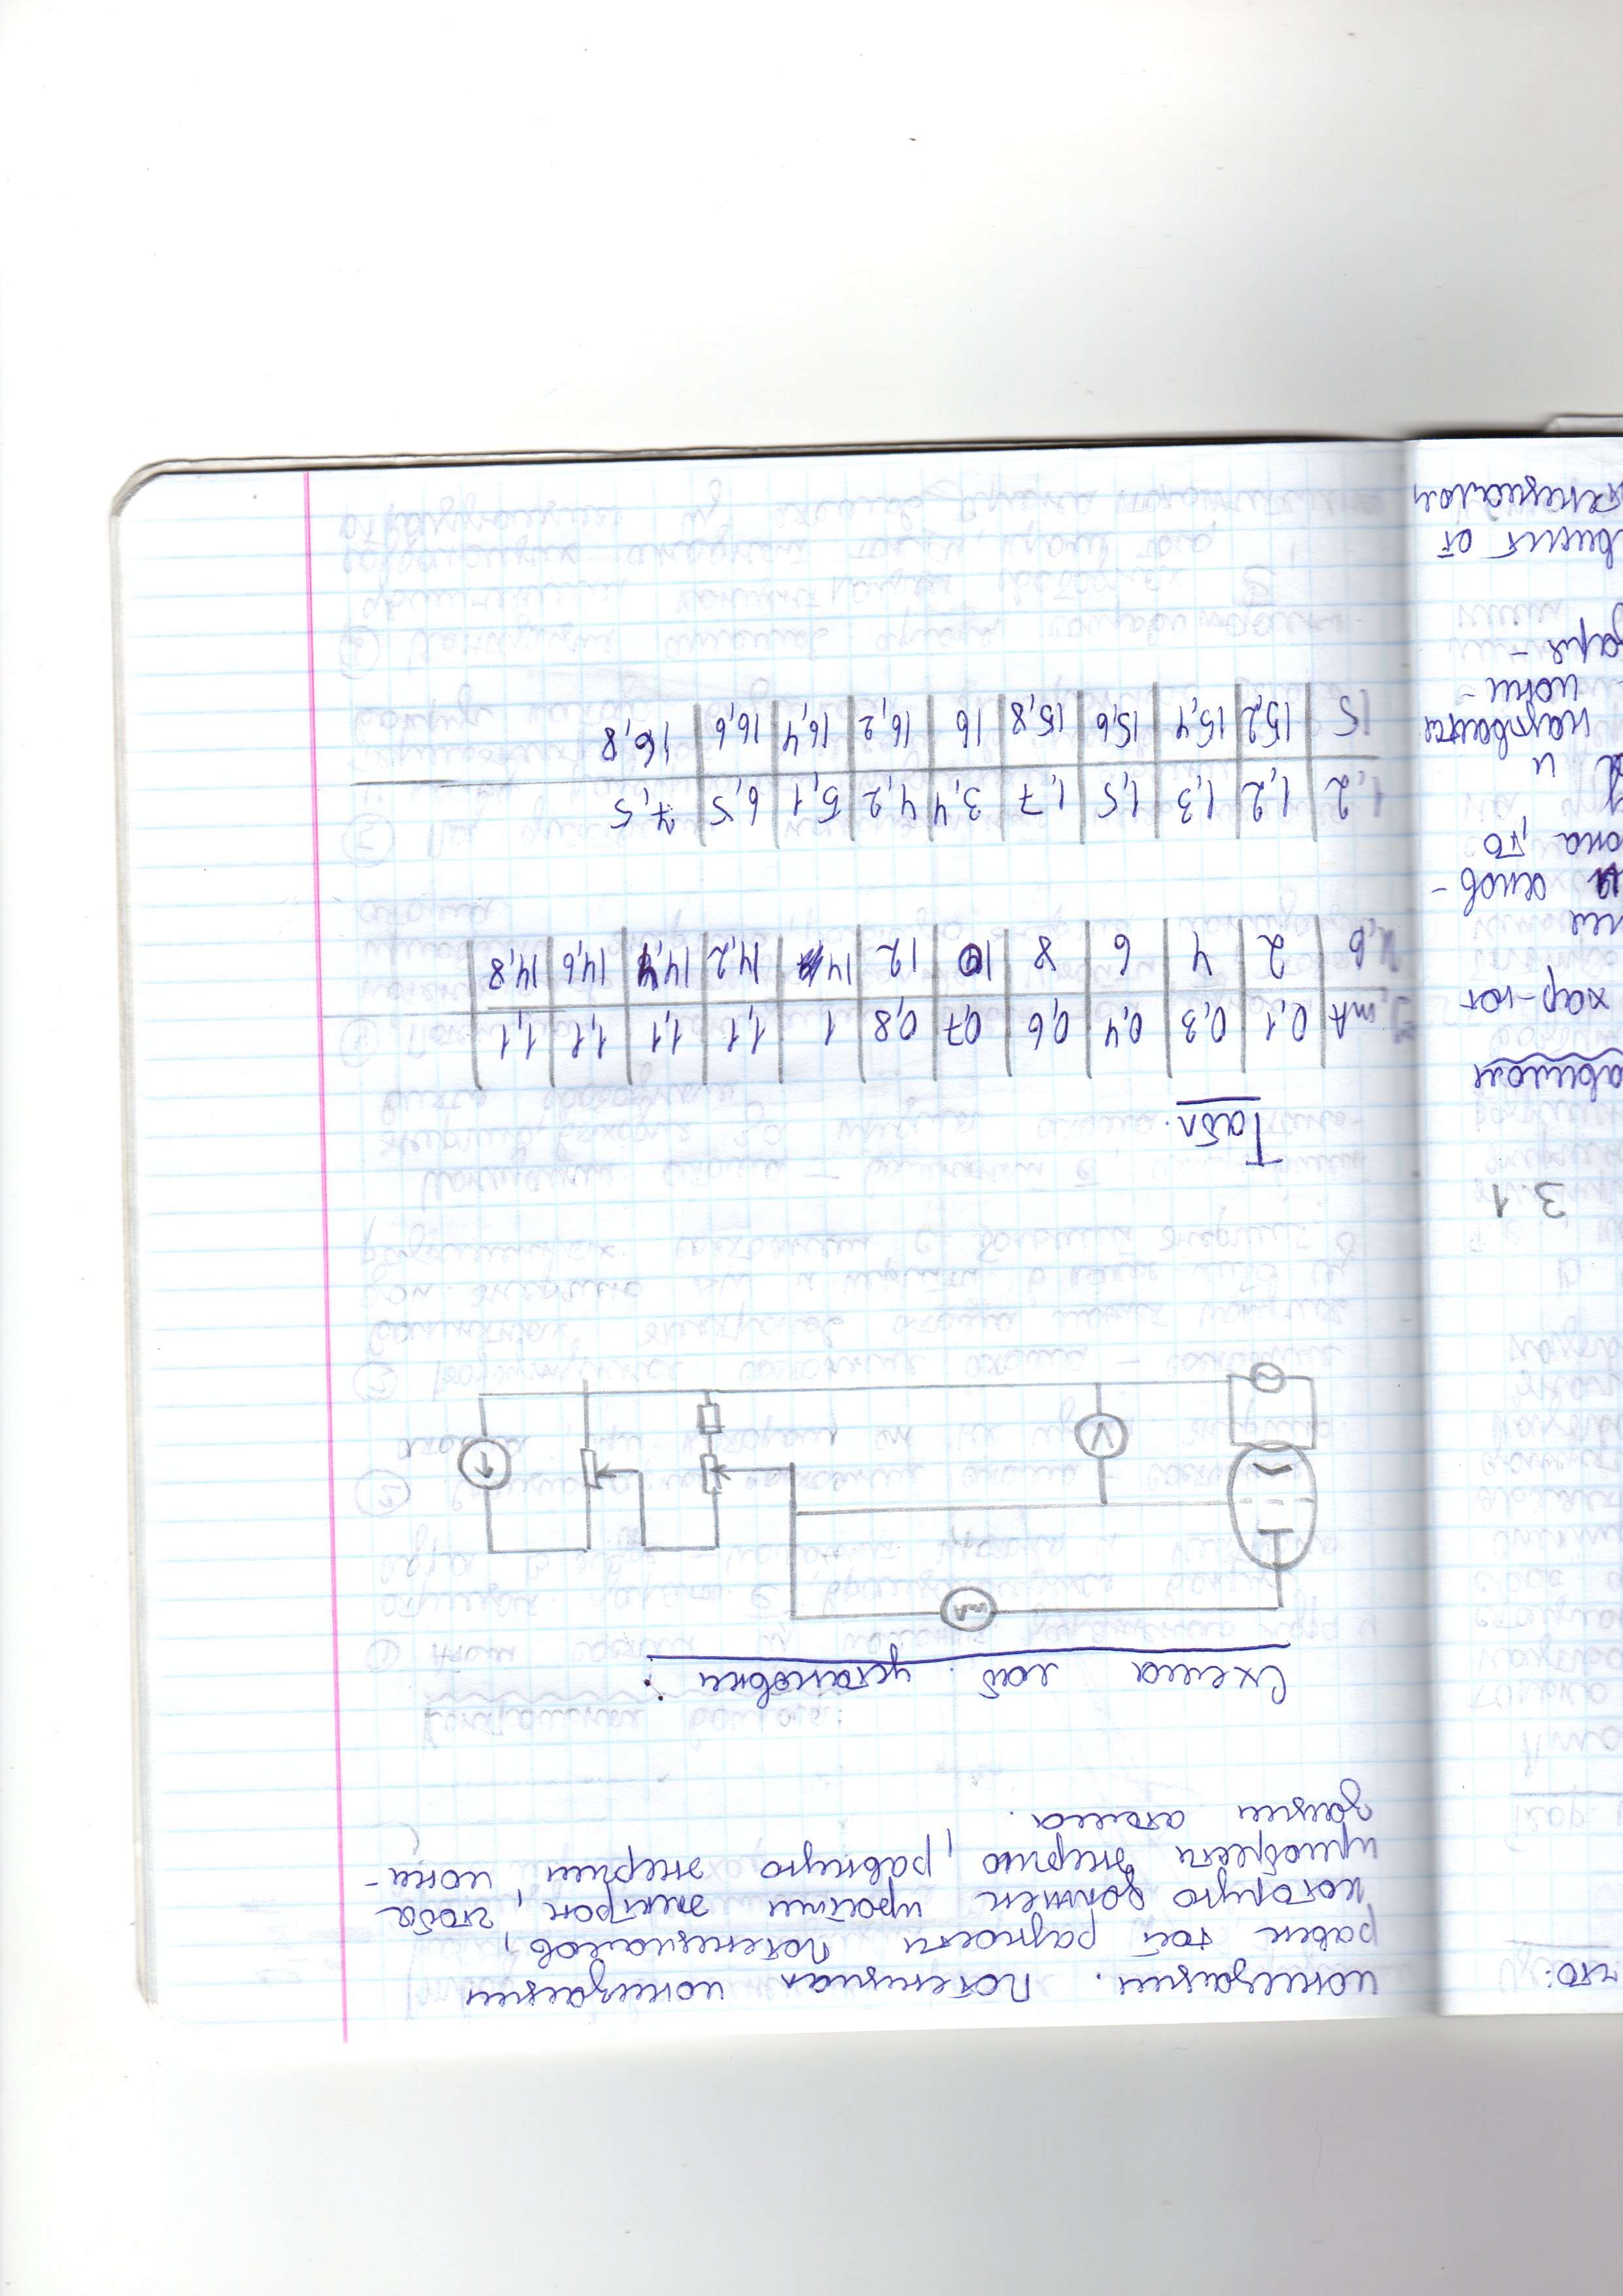 что:
3.1
авилом
хар-ют
ния
я основ-
она, то
у
и
называется
иони-
заря-
висит от
тенциалом
ионизации. Потенциал ионизации
равен той разности потенциалов,
которую должен пройти электрон, чтобы
приобрести энергию, равную энергии иони-
зации атома.
Схема лаб. установки:
mA
V
Табл.
I, mA 0,1 0,3 0,4 0,6 0,7 0,8 1 1,1 1,1 1,1 1,1
U, В 2 4 6 8 10 12 14 14,2 14,4 14,6 14,8
1,2 1,2 1,3 1,5 1,7 3,4 4,2 5,1 6,5 7,5
15 15,2 15,4 15,6 15,8 16 16,2 16,4 16,6 16,8